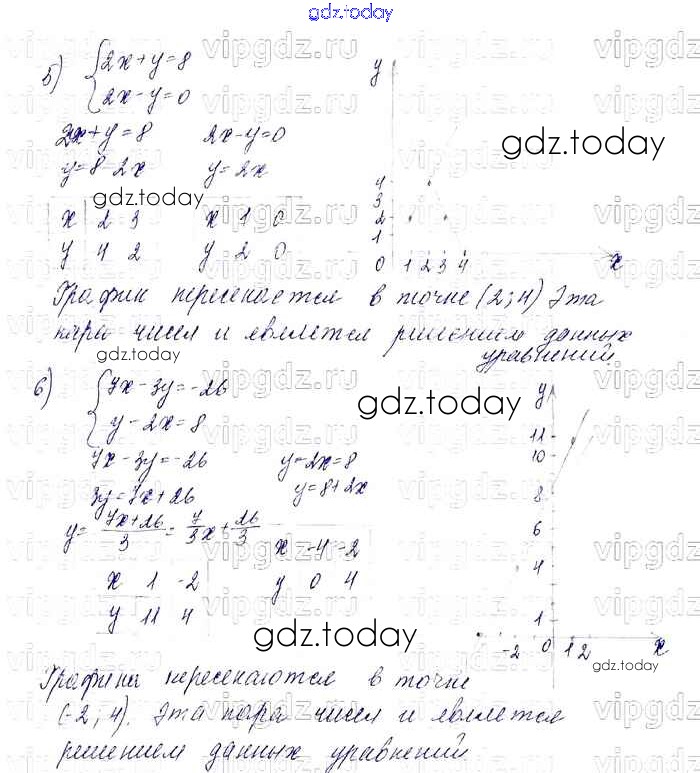 gdz.today
5) {2x+y=8
{2x-y=0
2x+y=8 2x-y=0
y=8-2x y=2x
x 2 3 x 1 0
y 4 2 y 2 0
y
4
3
2
1
0 1 2 3 4 x
График пересекается в точке (2;4) Эта
пара чисел и является решением данных
уравнений.
6) {7x-3y=-26
{y-2x=8
7x-3y=-26 y-2x=8
3y=7x+26 y=8+2x
y=(7x+26)/3=7/3x+26/3
x 1 -2 x -4 -2
y 11 4 y 0 4
y
11
10
8
6
4
1
-2 0 1 2 x
Графики пересекаются в точке
(-2;4). Эта пара чисел и является
решением данных уравнений
gdz.today
gdz.today
gdz.today
gdz.today
gdz.today
gdz.today
vipgdz.ru